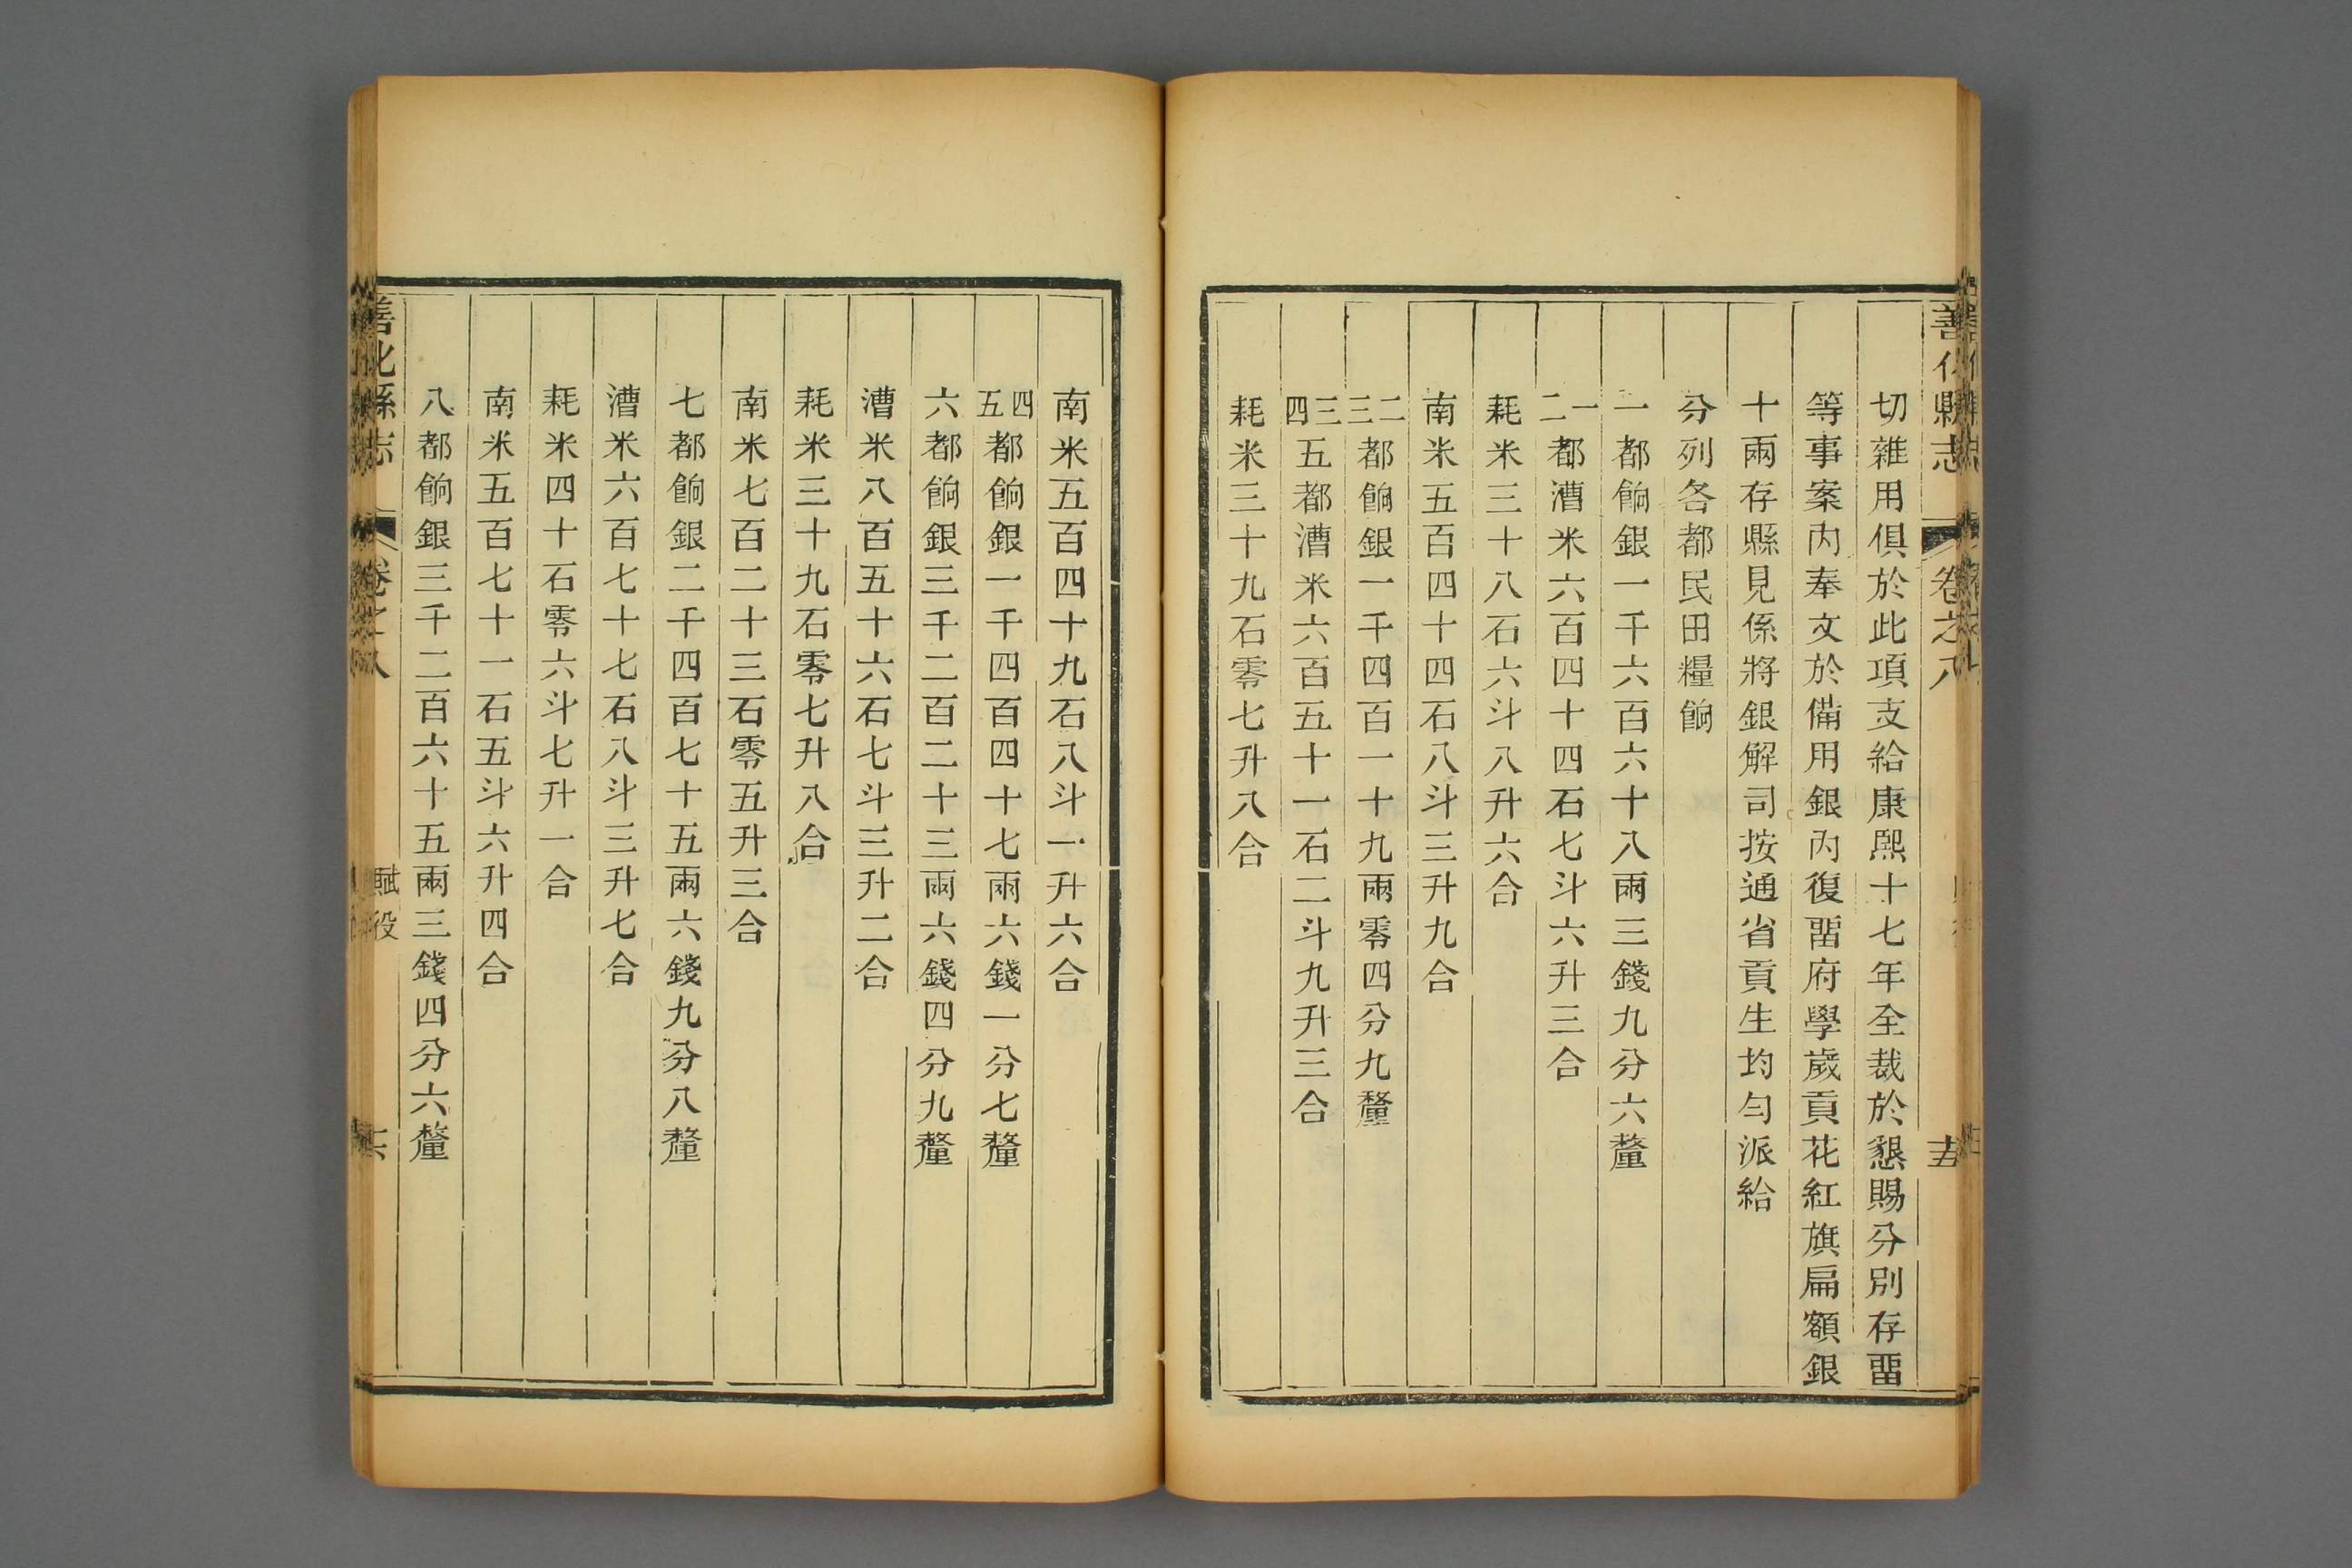 善化縣志 卷之八 十五
切雜用俱於此項支給康熙十七年全裁於懇賜分別存畱
等事案內奉文於備用銀內復畱府學歲貢花紅旗扁額銀
十兩存縣見係將銀解司按通省貢生均勻派給
分列各都民田糧餉
一都餉銀一千六百六十八兩三錢九分六釐
一二都漕米六百四十四石七斗六升三合
耗米三十八石六斗八升六合
南米五百四十四石八斗三升九合
二三都餉銀一千四百一十九兩零四分九釐
三四五都漕米六百五十一石二斗九升三合
耗米三十九石零七升八合
南米五百四十九石八斗一升六合
四五都餉銀一千四百四十七兩六錢一分七釐
六都餉銀三千二百二十三兩六錢四分九釐
漕米八百五十六石七斗三升二合
耗米三十九石零七升八合
南米七百二十三石零五升三合
七都餉銀二千四百七十五兩六錢九分八釐
漕米六百七十七石八斗三升七合
耗米四十石零六斗七升一合
南米五百七十一石五斗六升四合
八都餉銀三千二百六十五兩三錢四分六釐
善化縣志 卷之八 賦役